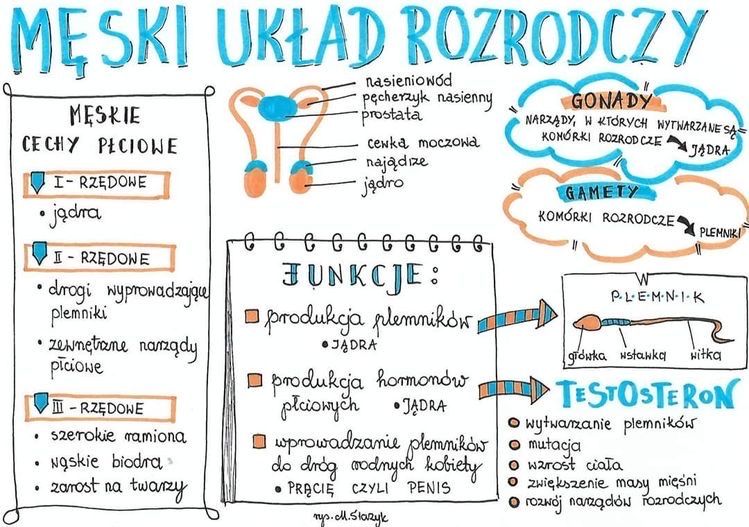 MĘSKI UKŁAD ROZRODCZY
MĘSKIE
CECHY PŁCIOWE
I - RZĘDOWE
• jądra
II - RZĘDOWE
• drogi wyprowadzające
plemniki
• zewnętrzne narządy
płciowe
III - RZĘDOWE
• szerokie ramiona
• wąskie biodra
• zarost na twarzy
nasieniowód
pęcherzyk nasienny
prostata
cewka moczowa
najądrze
jądro
GONADY
NARZĄDY, W KTÓRYCH WYTWARZANE SĄ
KOMÓRKI ROZRODCZE
JĄDRA
GAMETY
KOMÓRKI ROZRODCZE
PLEMNIKI
FUNKCJE:
produkcja plemników
• JĄDRA
produkcja hormonów
płciowych • JĄDRA
wprowadzanie plemników
do dróg rodnych kobiety
• PRĄCIE CZYLI PENIS
P·L·E·M·N·I·K
główka wstawka witka
TESTOSTERON
wytwarzanie plemników
mutacja
wzrost ciała
zwiększenie masy mięśni
rozwój narządów rozrodczych
rys. M. Ślązyk